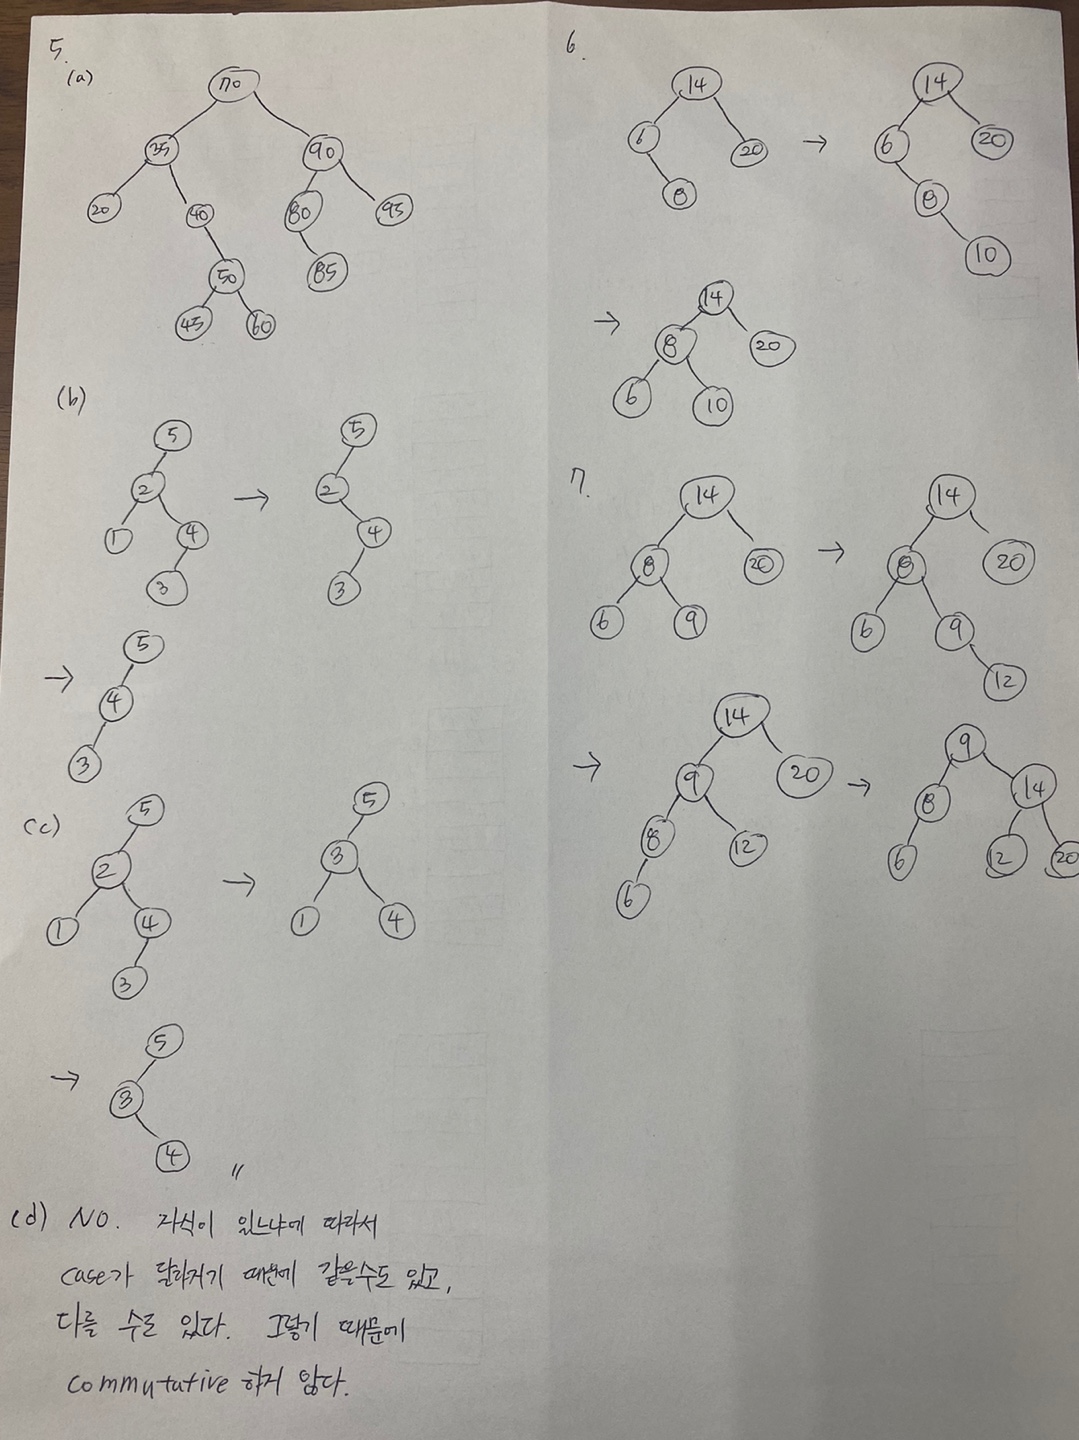 5.
(a)
70
35 90
20 40 80 95
50 85
45 60
(b)
5 5
2 → 2
1 4 4
3 3
5
→ 4
3
(c)
5 5
2 → 3
1 4 1 4
3
5
→ 3
4 〃
(d) NO. 자식이 있느냐에 따라서
case가 달라지기 때문에 같을수도 있고,
다를 수도 있다. 그렇기 때문에
commutative 하지 않다.
6.
14 14
6 20 → 6 20
8 8
10
14
→ 8 20
6 10
7.
14 14
8 20 → 8 20
6 9 6 9
12
14 9
→ 9 20 → 8 14
8 12 6 12 20
6